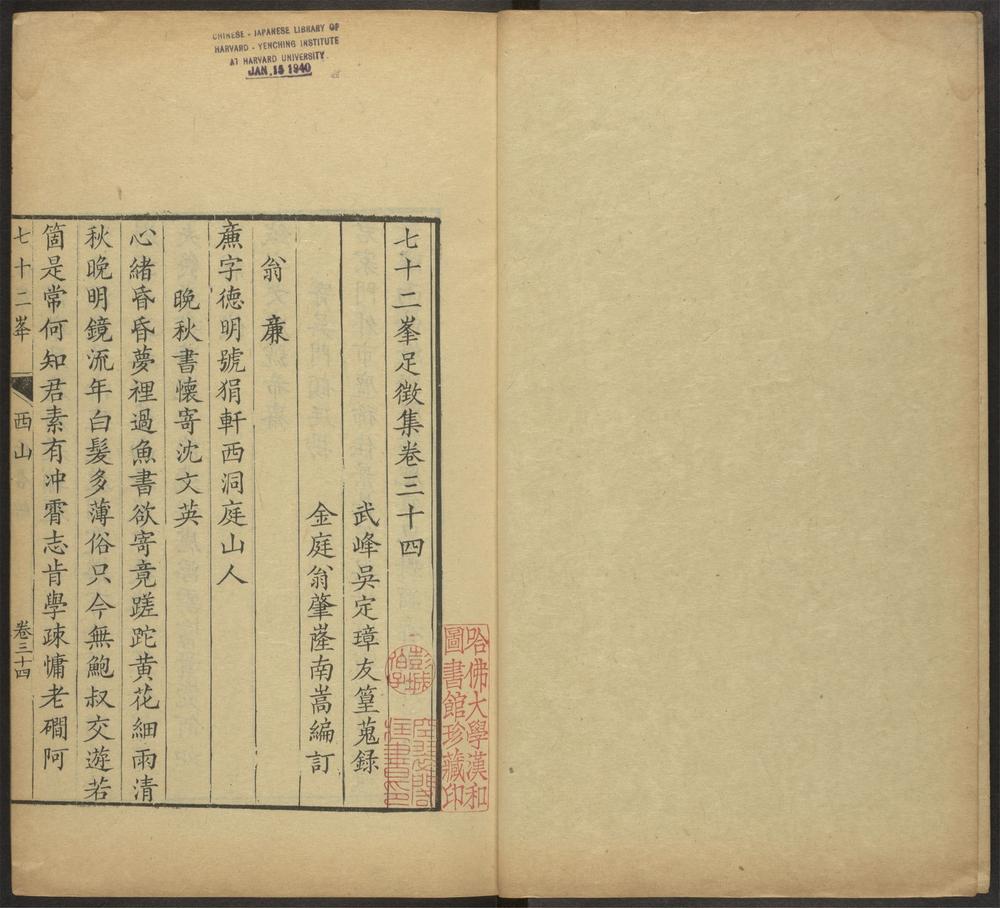 CHINESE - JAPANESE LIBRARY OF
HARVARD - YENCHING INSTITUTE
AT HARVARD UNIVERSITY
JAN 15 1940
哈佛大學漢和
圖書館珍藏印
七十二峯足徵集卷三十四
武峰吳定璋友篁蒐録
金庭翁肇薩南嵩編訂
翁𢊍
𢊍字德明號狷軒西洞庭山人
晚秋書懷寄沈文英
心緒昏昏夢裡過魚書欲寄竟蹉跎黄花細雨清
秋晚明鏡流年白髮多薄俗只今無鮑叔交遊若
箇是常何知君素有冲霄志肯學疎慵老磵阿
七十二峯
西山
卷三十四